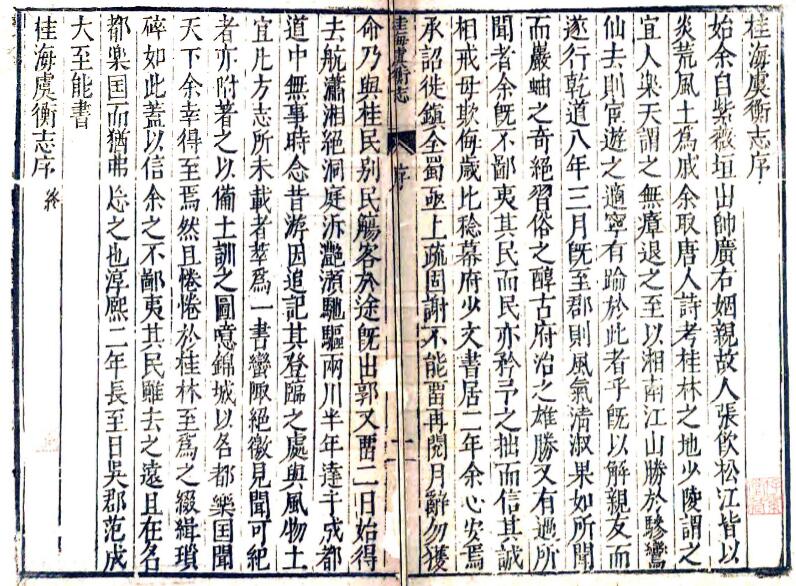 桂海虞衡志序
始余自紫薇垣出帥廣右姻親故人張飲松江皆以
炎荒風土為戚余取唐人詩考桂林之地少陵謂之
宜人樂天謂之無瘴退之至以湘南江山勝於驂鸞
仙去則宦遊之適寧有踰於此者乎既以解親友而
遂行乾道八年三月既至郡則風氣清淑果如所聞
而巖岫之奇絕習俗之醇古府治之雄勝又有過所
聞者余既不鄙夷其民而民亦矜予之拙而信其誠
相戒毋欺侮歲比稔幕府少文書居二年余心安焉
承詔徙鎮全蜀亟上疏固謝不能留再閱月辭勿獲
桂海虞衡志 序 一
命乃與桂民別民觴客於途既出郭又留二日始得
去航瀟湘絕洞庭泝灩澦馳驅兩川半年達于成都
道中無事時念昔游因追記其登臨之處與風物土
宜凡方志所未載者萃為一書蠻陬絕徼見聞可紀
者亦附著之以備土訓之圖噫錦城以名都樂国聞
天下余幸得至焉然且惓惓於桂林至為之綴緝瑣
碎如此蓋以信余之不鄙夷其民雖去之遠且在名
都樂国而猶弗忘之也淳熙二年長至日吳郡范成
大至能書
桂海虞衡志序 終